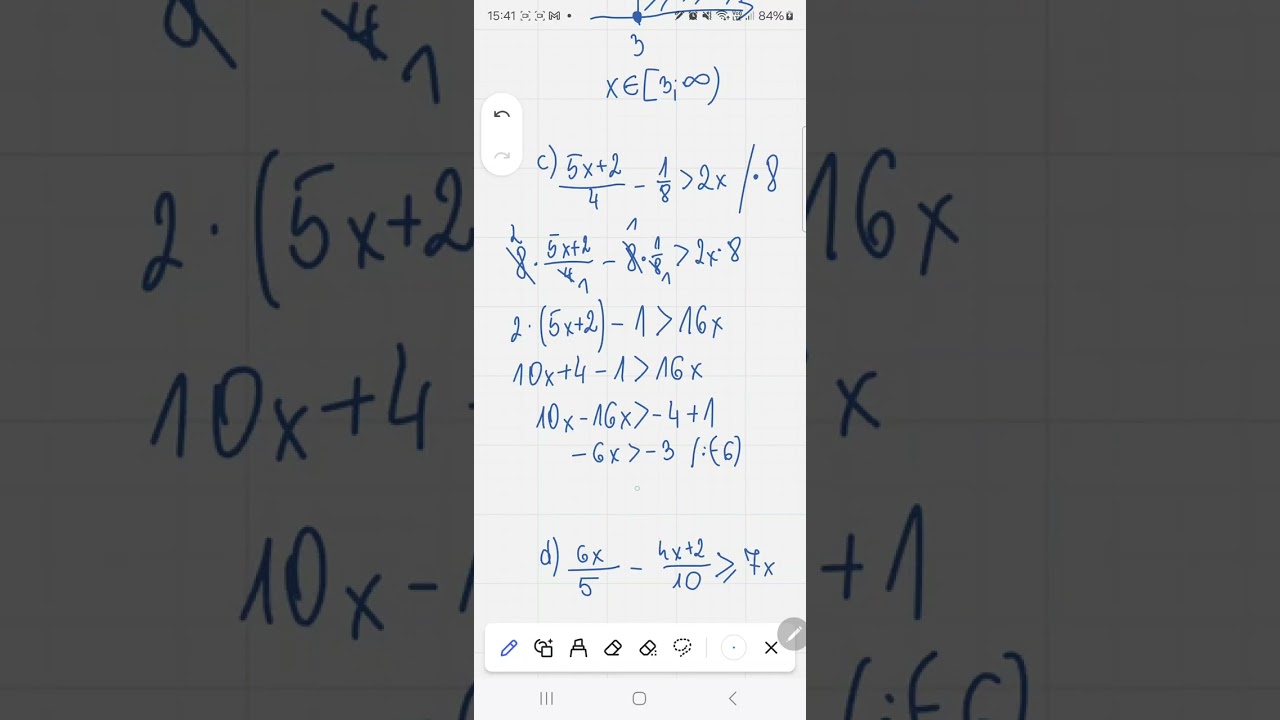 15:41 84%
3
x∈[3;∞)
c) 5x+2/4 - 1/8 > 2x /·8
2 8 · 5x+2/4 1 - 1 8 · 1/8 1 > 2x·8
2·(5x+2) - 1 > 16x
10x+4 - 1 > 16x
10x - 16x > -4 + 1
-6x > -3 /:(-6)
d) 6x/5 - 4x+2/10 ⩾ 7x